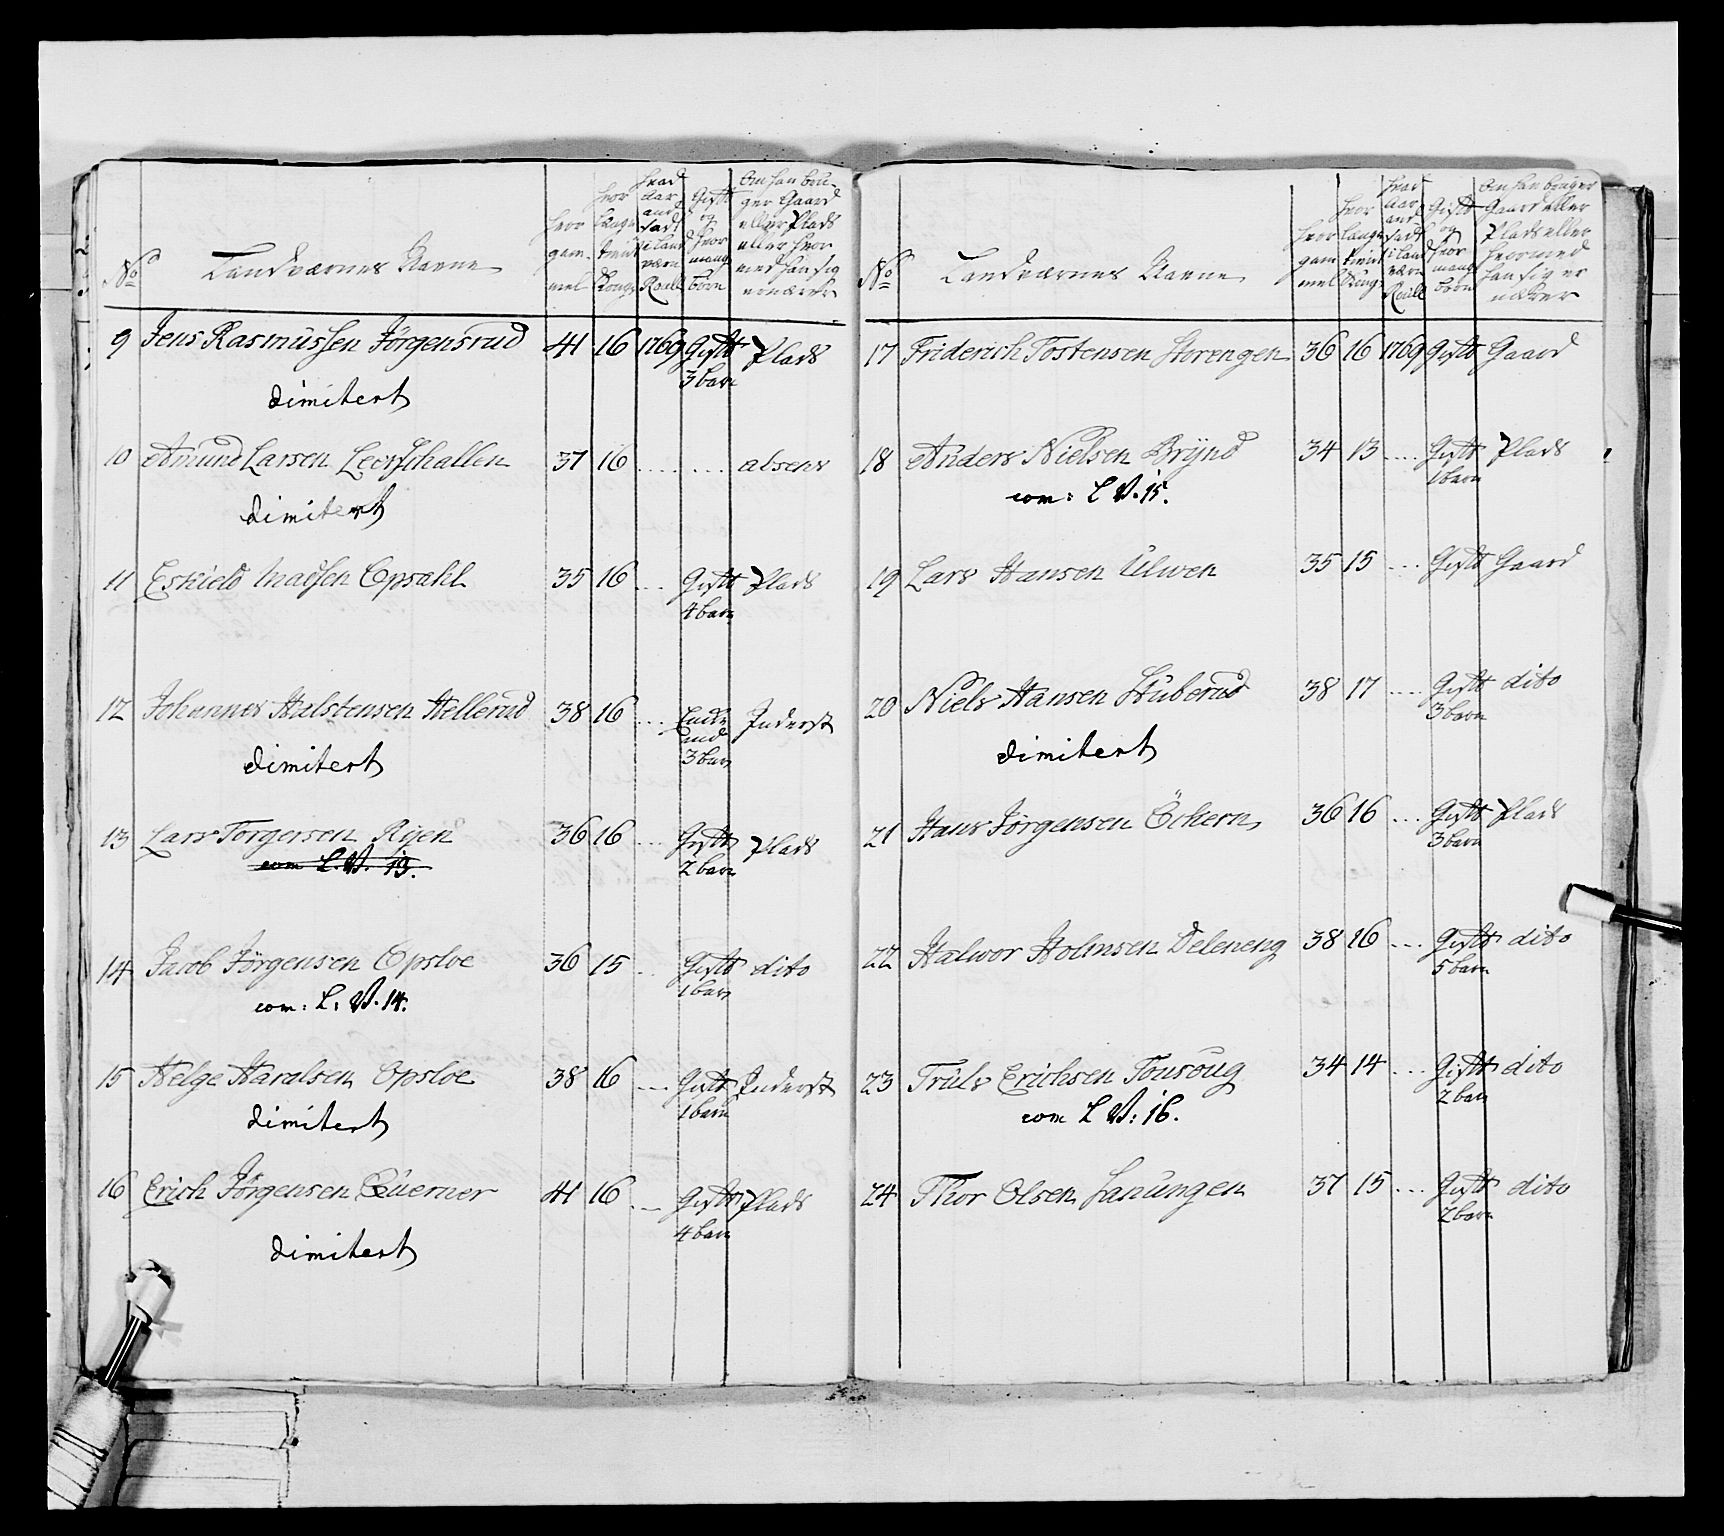 No
Landværnes Navne
hvor gammel
hvor længe tient Kongen
hvad Aar ansadt i Landværn Roull
Gift og hvor mang børn
Om han bruger Gaard eller Plads eller hvormed han sig ernærer
9 Jens Rasmussen Jörgensrud 41 16 1769 Gift Plads
3 barn
dimitert
10 Amund Larsen Leerschallen 37 16 .... .... absens
dimitert
11 Eskield Madsen Opsahl 35 16 ... Gift Plads
4 barn
12 Johannes Halstensen Hellerud 38 16 ... Encke Inderst
md
3 barn
dimitert
13 Lars Torgersen Rÿen 36 16 ... Gift Plads
2 barn
com L.V. 13.
14 Jacob Jörgensen Opsloe 36 15 .. Gift dito
1 barn
com: L: V. 14.
15 Helge Haralsen Opsloe 38 16 ... Gift Inderst
1 barn
dimitert
16 Erich Jörgensen Querner 41 16 ... Gift Plads
4 barn
dimitert
No
Landværnes Navne
hvor gammel
hvor længe tient Kong
hvad Aar ansadt i Landværn Roull
Gift og hvor mang børn
Om han bruger Gaard eller Plads eller hvormed han sig er nærer
17 Friderich Tostensen Storengen 36 16 1769 Gift Gaard
18 Anders Nielsen Brÿnd 34 13 .... Gift Plads
1 barn
com: L V. 15.
19 Lars Hansen Ulwen 35 15 .... Gift Gaard
20 Niels Hansen Stuberud 38 17 .... Gift dito
3 barn
dimitert
21 Hans Jörgensen Öckern 36 16 ... Gift Plads
3 barn
22 Halwor Holmsen Deleneng 38 16 ... Gift dito
5 barn
23 Truls Erichsen Tousoug 34 14 ... Gift dito
2 barn
com L V: 16.
24 Thor Olsen Lanungen 37 15 ... Gift dito
2 barn